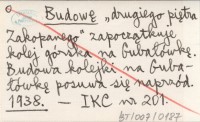 Budowę „drugiego piętra
Zakopanego" zapoczątkuje
kolej górska na Gubałówkę.
Budowa kolejki na Guba-
łówkę posuwa się naprzód.
1938. – IKC nr 201.
ST/007/0187